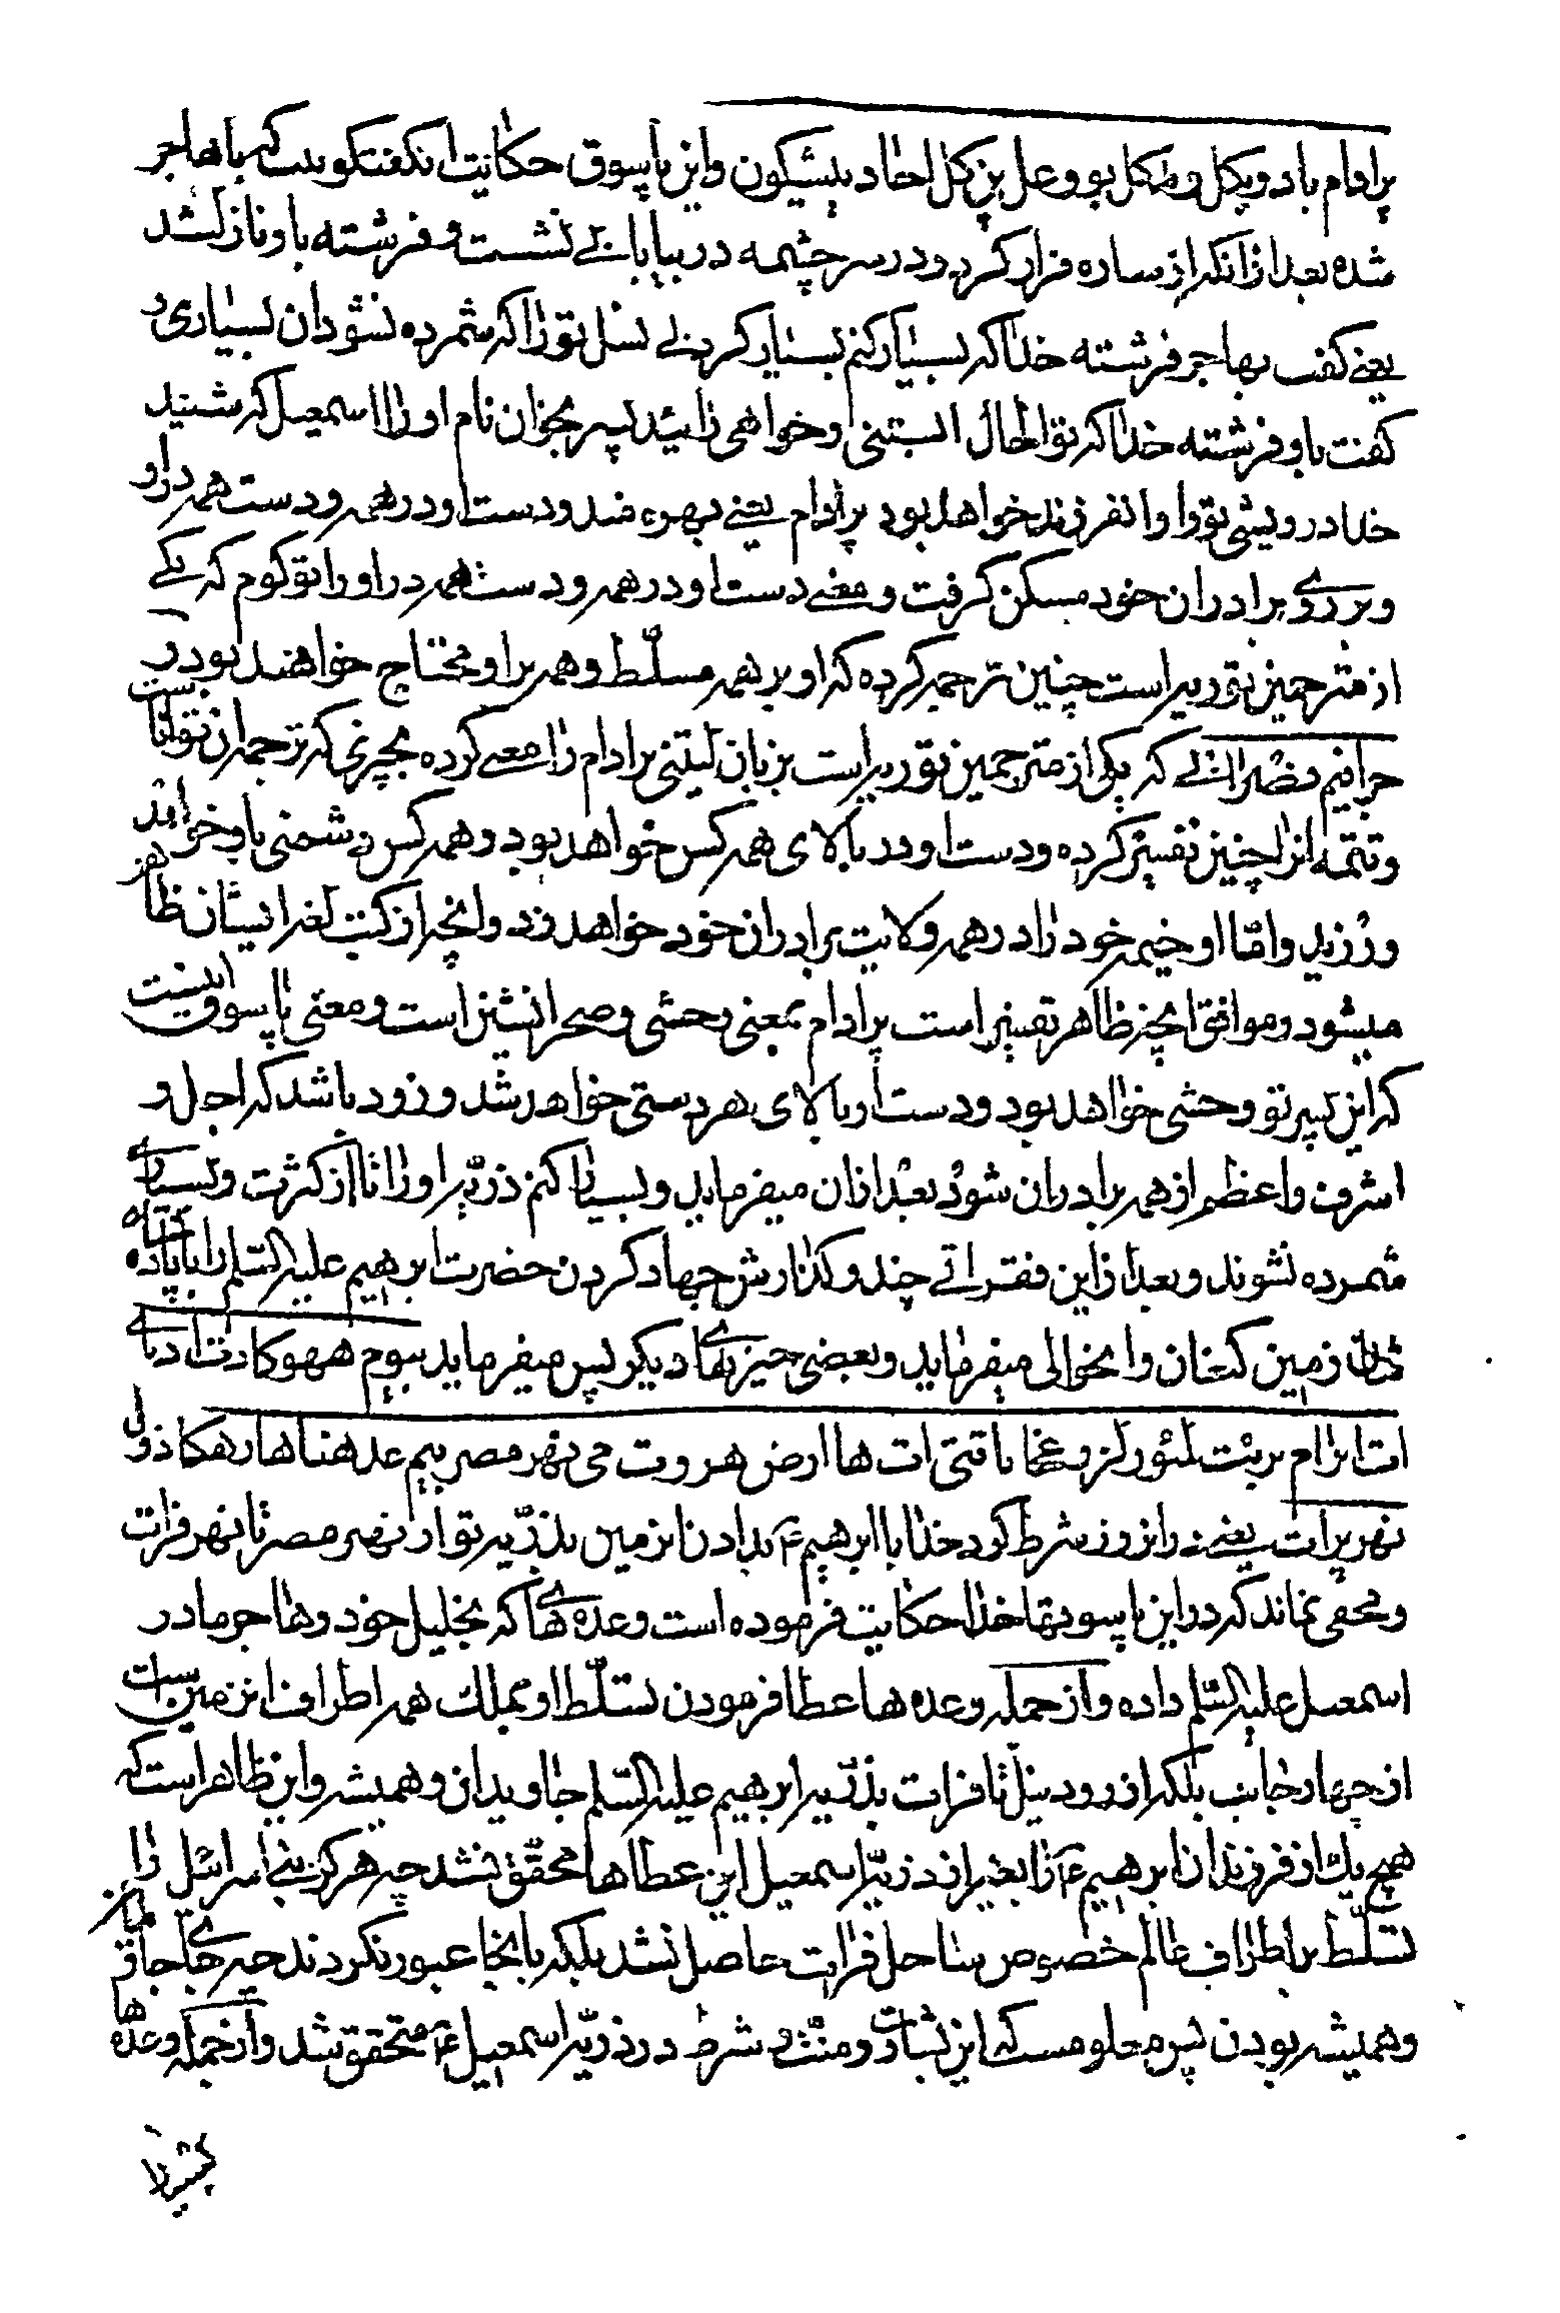 پرادام یادو بکل و یدکل بو و عل پن کل احاد پیشکون و این پاسوق حکایت انگفتگوییست که با هاجر
شده بعد از انکه از ساره فرار کرد و در سر چشمه در بیابانی نشست و فرشته باو نازل شد
یعنی کفت بهاجر فرشته خدا که بسیار کنم بسیار کردنی نسل تو را که شمرده نشود ان بسیاری و
کفت باو فرشته خدا که تو الحال ابستنی و خواهی زائید پسر بخوان نام او را اسمعیل که شنید
خدا درویشی تو را و انفرزند خواهد بود پرادام یعنی بهره مند و دست او در همه و دست همه در او
و بر روی برادران خود مسکن کرفت و معنی دست او در همه و دست همه در او را توکوم که یکی
از مترجمین توریه است چنین ترجمه کرده که او بر همه مسلّط و همه بر او محتاج خواهند بود و
جرانیم که یکی از مترجمین توریه است بزبان لیتنی پرادام را معنی کرده بچیزی که ترجمه ان توانا است
و تتمه انرا چنین تفسیر کرده و دست او در بالای همه کس خواهد بود و همه کس دشمنی با او خواهند
ورزید و امّا او خیمه خود را در همه ولایت برادران خود خواهد زد و انچه از کتب لغه ایشان ظاهر
میشود و موافق انچه ظاهر تفسیر است پرادام بمعنی وحشی و صحرا نشین است و معنی پاسوق اینست
که این پسر تو وحشی خواهد بود و دست او بالای هر دستی خواهد شد و زود باشد که اجل و
اشرف و اعظم از همه برادران شود بعد از ان میفرماید و بسیار کنم ذریّه او را تا از کثرت و بسیاری
شمرده نشوند و بعد از این فقراتی چند و کذارش جهاد کردن حضرت ابرهیم علیه السّلم را با پادشاه
زمین کنعان و انحوالی میفرماید و بعضی چیزهای دیکر پس میفرماید بیوم ههو کارت ادنای
ات ابرام بریت لئمور لزرعخا ناتتی ات ها ارض هزوت می نهر مصریم عد هناهار هکادول
نهر پرات یعنی در انروز شرط کرد خدا با ابرهیم ع بدادن انزمین بذریّه تو از نهر مصر تا نهر فرات
و مخفی نماند که در این پاسوقها خدا حکایت فرموده است وعده هائی که بخلیل خود و هاجر مادر
اسمعیل علیه السّلم داده و از جمله وعده ها عطا فرمودن تسلّط او بملک همه اطراف انزمین است
از چهار جانب بلکه از رود نیل تا فرات بذریّه ابرهیم علیه السّلم جاویدان و همیشه و این ظاهر است که
هیچ یک از فرزندان ابرهیم ع را بغیر از ذریّه اسمعیل این عطاها محقّق نشد چه هرکز بنی اسرائیل را
تسلّط بر اطراف عالم خصوص ساحل فرات حاصل نشد بلکه بانجا عبور نکردند چه جای جا
و همیشه بودن پس معلومست که این بشارت و منّت و شرط در ذریّه اسمعیل ع متحقق شد و از جمله وعده ها